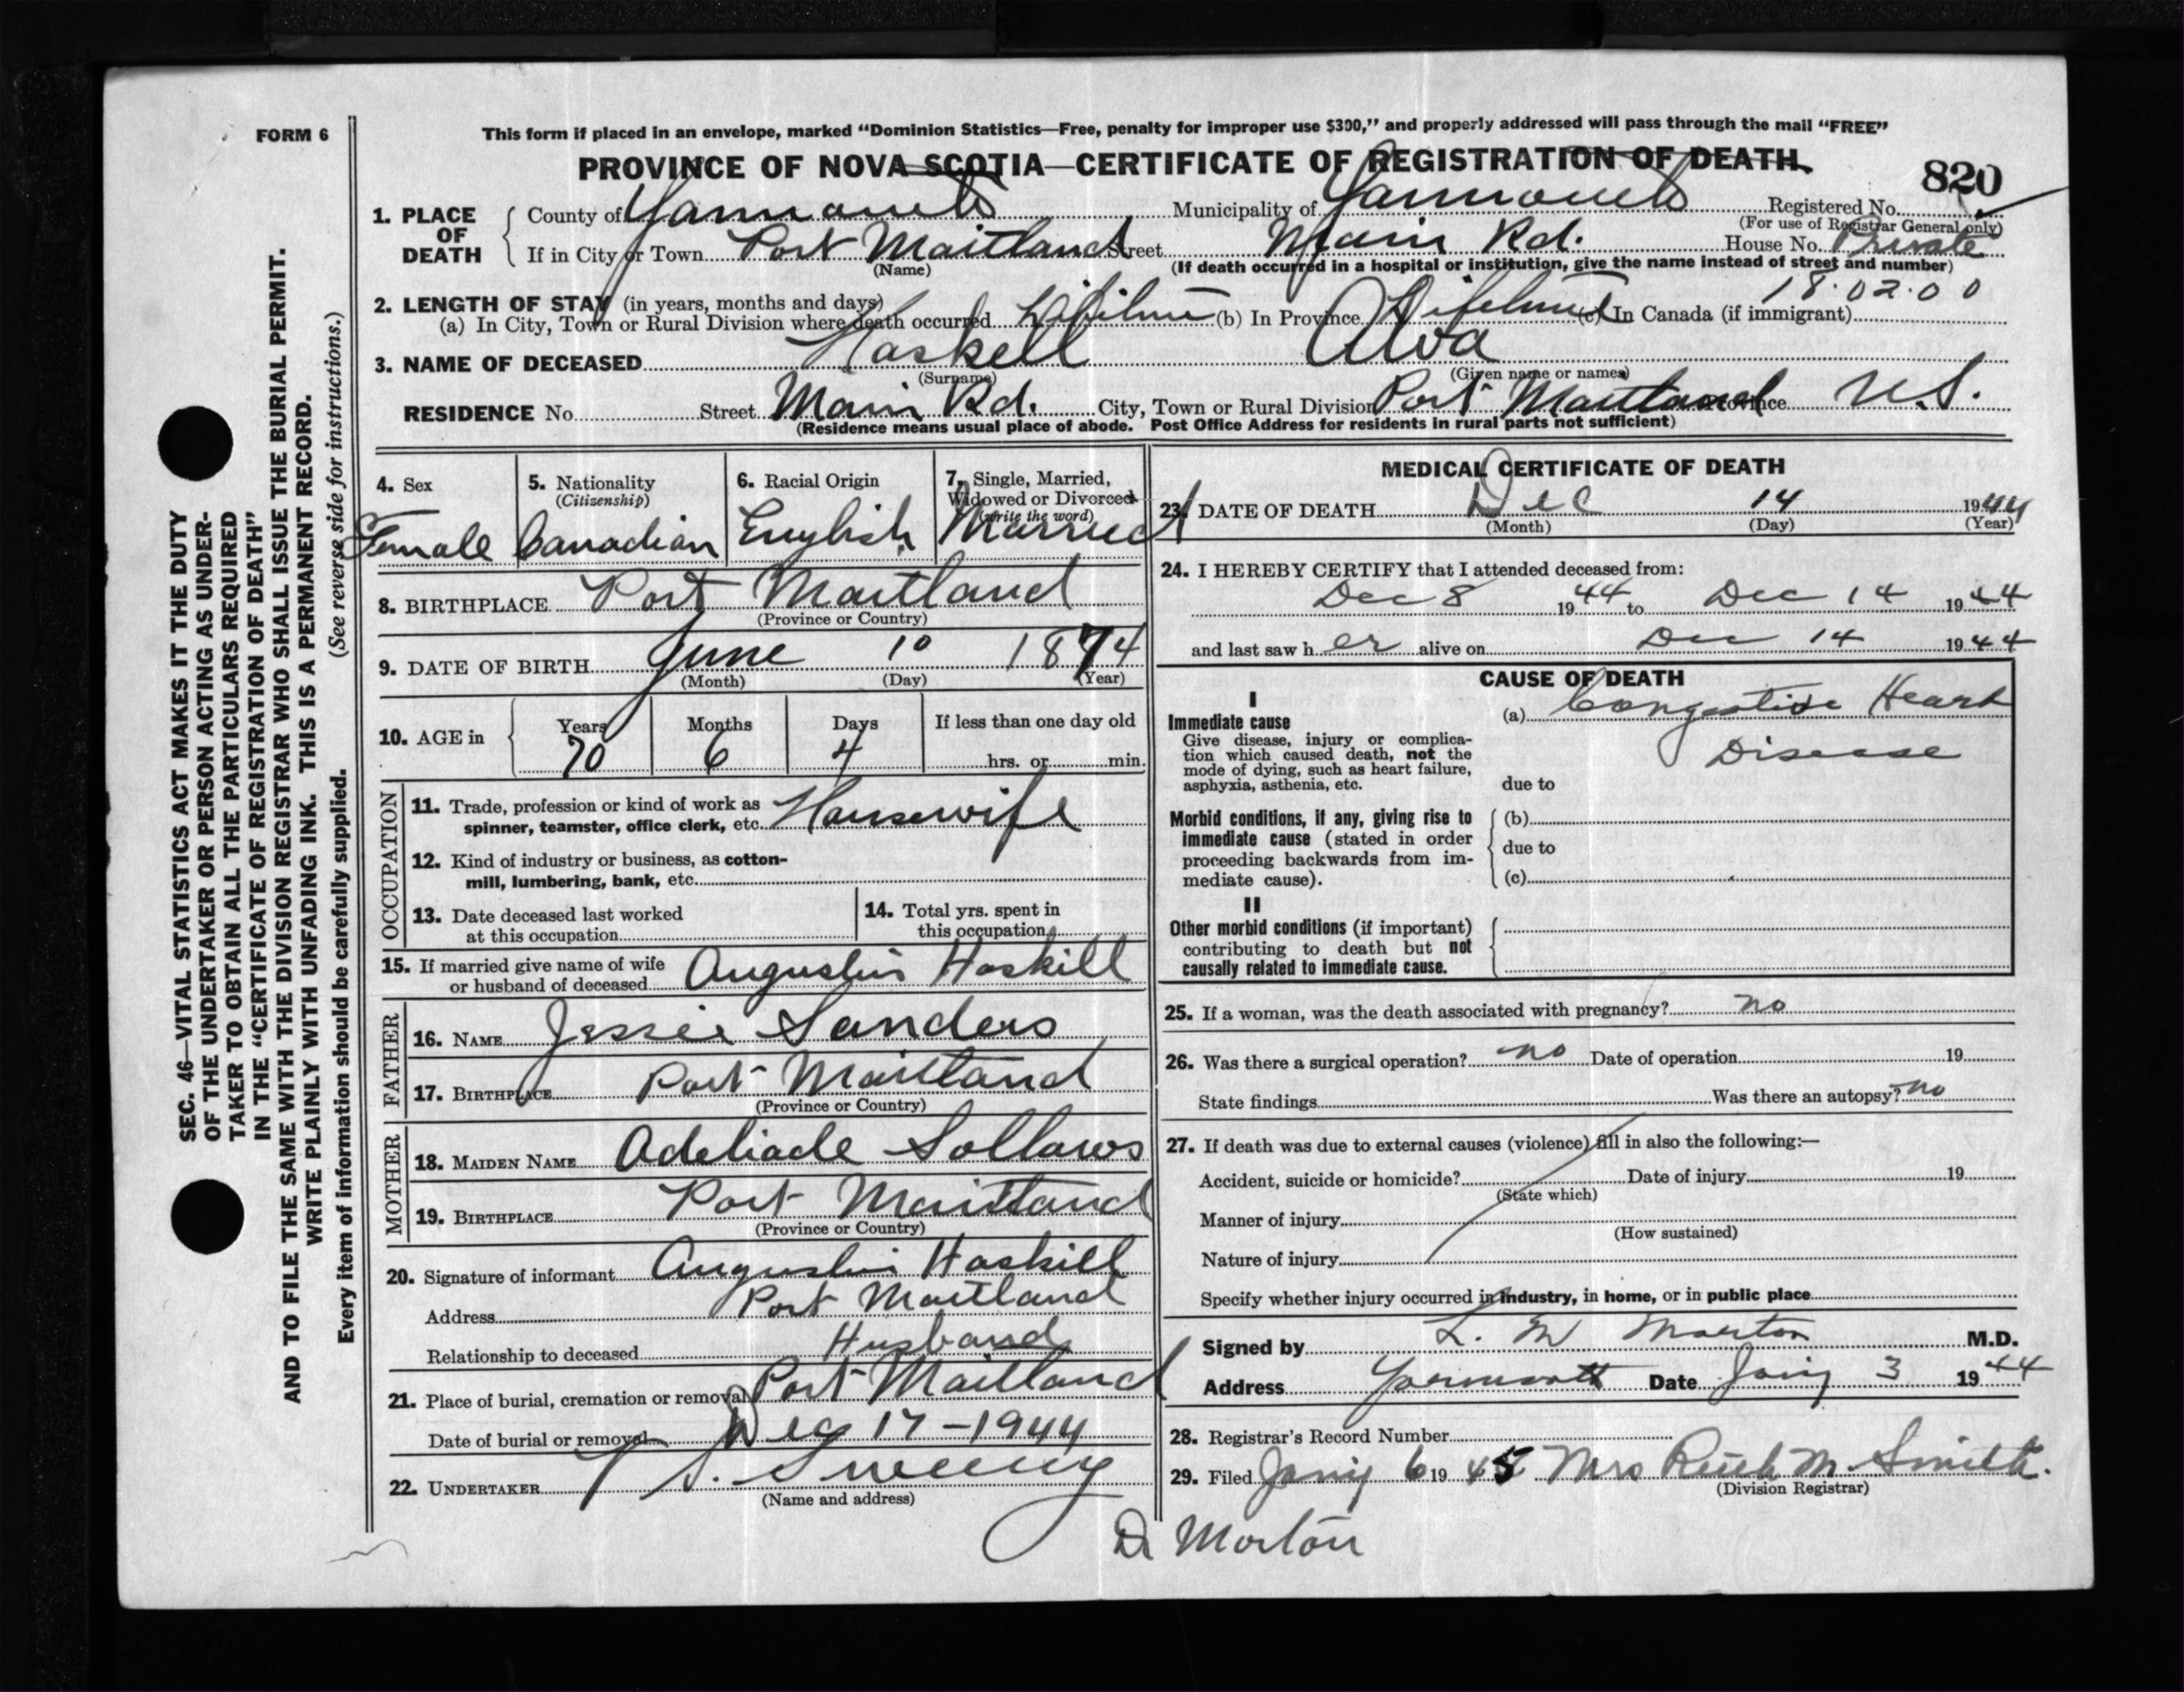 FORM 6
This form if placed in an envelope, marked “Dominion Statistics—Free, penalty for improper use $300,” and properly addressed will pass through the mail “FREE”
PROVINCE OF NOVA SCOTIA—CERTIFICATE OF REGISTRATION OF DEATH
820
1. PLACE OF DEATH County of Yarmouth Municipality of Yarmouth Registered No.
(For use of Registrar General only)
If in City or Town Port Maitland Street Main Rd. House No. Private
(Name) (If death occurred in a hospital or institution, give the name instead of street and number)
18.02.00
2. LENGTH OF STAY (in years, months and days)
(a) In City, Town or Rural Division where death occurred Lifetime (b) In Province Lifetime (c) In Canada (if immigrant)
3. NAME OF DECEASED Haskell Alva
(Surname) (Given name or names)
RESIDENCE No. Street Main Rd. City, Town or Rural Division Port Maitland Province N.S.
(Residence means usual place of abode. Post Office Address for residents in rural parts not sufficient)
4. Sex Female
5. Nationality (Citizenship) Canadian
6. Racial Origin English
7. Single, Married, Widowed or Divorced (write the word) Married
8. BIRTHPLACE Port Maitland
(Province or Country)
9. DATE OF BIRTH June 10 1874
(Month) (Day) (Year)
10. AGE in Years 70 Months 6 Days 4 If less than one day old hrs. or min.
OCCUPATION
11. Trade, profession or kind of work as spinner, teamster, office clerk, etc. Housewife
12. Kind of industry or business, as cotton-mill, lumbering, bank, etc.
13. Date deceased last worked at this occupation
14. Total yrs. spent in this occupation
15. If married give name of wife or husband of deceased Augustus Haskill
FATHER
16. NAME Jessie Sanders
17. BIRTHPLACE Port Maitland
(Province or Country)
MOTHER
18. MAIDEN NAME Adeliade Sollows
19. BIRTHPLACE Port Maitland
(Province or Country)
20. Signature of informant Augustus Haskill
Address Port Maitland
Relationship to deceased Husband
21. Place of burial, cremation or removal Port Maitland
Date of burial or removal Dec 17-1944
22. UNDERTAKER S. Sweeny
(Name and address)
MEDICAL CERTIFICATE OF DEATH
23. DATE OF DEATH Dec 14 1944
(Month) (Day) (Year)
24. I HEREBY CERTIFY that I attended deceased from:
Dec 8 1944 to Dec 14 1944
and last saw her alive on Dec 14 1944
CAUSE OF DEATH
I
Immediate cause
Give disease, injury or complication which caused death, not the mode of dying, such as heart failure, asphyxia, asthenia, etc.
(a) Congestive Heart Disease
due to
Morbid conditions, if any, giving rise to immediate cause (stated in order proceeding backwards from immediate cause).
(b)
due to
(c)
II
Other morbid conditions (if important) contributing to death but not causally related to immediate cause.
25. If a woman, was the death associated with pregnancy? no
26. Was there a surgical operation? no Date of operation 19
State findings Was there an autopsy? no
27. If death was due to external causes (violence) fill in also the following:—
Accident, suicide or homicide? Date of injury 19
(State which)
Manner of injury
(How sustained)
Nature of injury
Specify whether injury occurred in industry, in home, or in public place
Signed by L. M Morton M.D.
Address Yarmouth Date Jany 3 1944
28. Registrar's Record Number
29. Filed Jany 6 1945 Mrs Ruth M. Smith.
(Division Registrar)
Dr Morton
SEC. 46—VITAL STATISTICS ACT MAKES IT THE DUTY
OF THE UNDERTAKER OR PERSON ACTING AS UNDER-
TAKER TO OBTAIN ALL THE PARTICULARS REQUIRED
IN THE “CERTIFICATE OF REGISTRATION OF DEATH”
AND TO FILE THE SAME WITH THE DIVISION REGISTRAR WHO SHALL ISSUE THE BURIAL PERMIT.
WRITE PLAINLY WITH UNFADING INK. THIS IS A PERMANENT RECORD.
Every item of information should be carefully supplied. (See reverse side for instructions.)